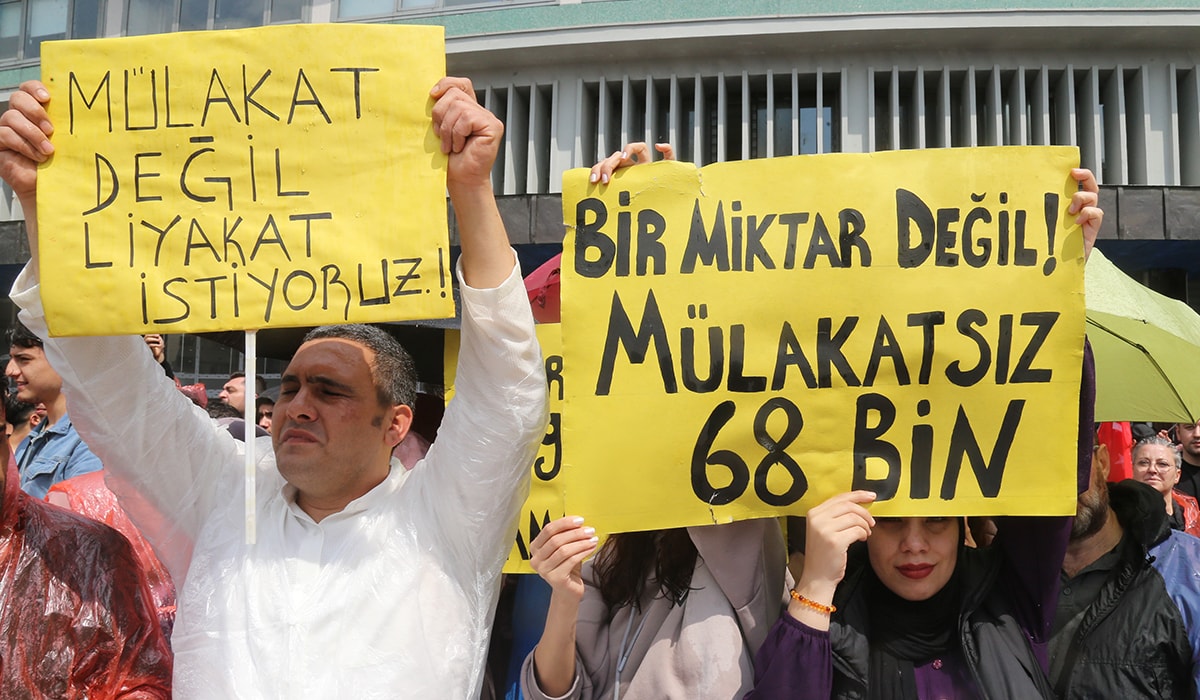 MÜLAKAT
DEĞİL
LİYAKAT
İSTİYORUZ.!
BİR MİKTAR DEĞİL!
MÜLAKATSIZ
68 BİN